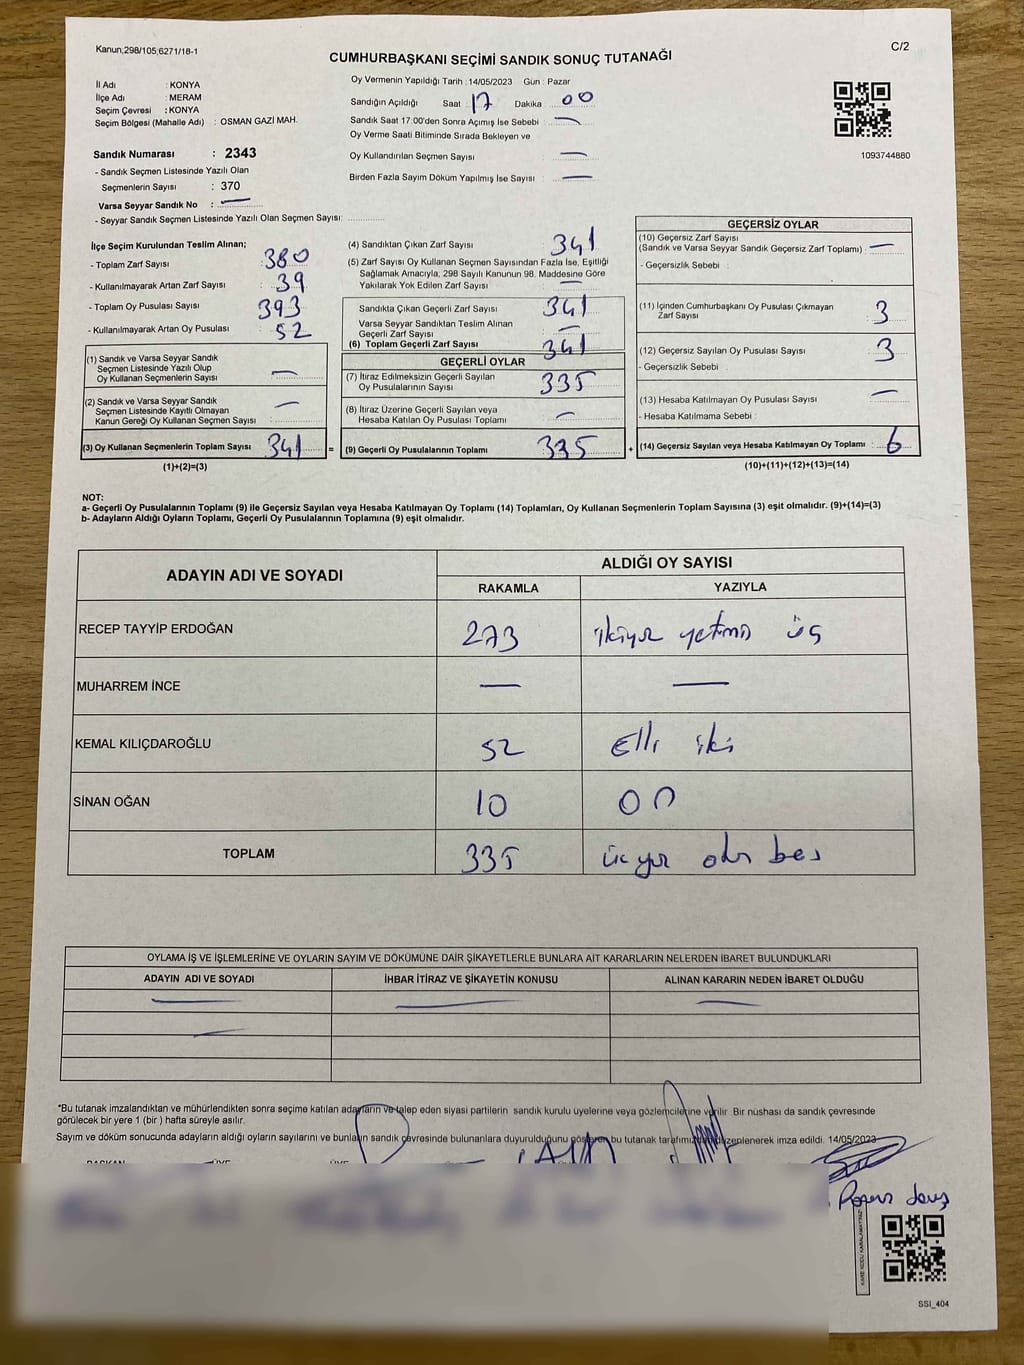 Kanun;298/105;6271/18-1
C/2
CUMHURBAŞKANI SEÇİMİ SANDIK SONUÇ TUTANAĞI
İl Adı : KONYA
İlçe Adı : MERAM
Seçim Çevresi : KONYA
Seçim Bölgesi (Mahalle Adı) : OSMAN GAZİ MAH.
Oy Vermenin Yapıldığı Tarih : 14/05/2023 Gün : Pazar
Sandığın Açıldığı Saat 17 Dakika 00
Sandık Saat 17:00'den Sonra Açımış İse Sebebi : —
Oy Verme Saati Bitiminde Sırada Bekleyen ve
Oy Kullandırılan Seçmen Sayısı : —
Birden Fazla Sayım Döküm Yapılmış İse Sayısı : —
1093744880
Sandık Numarası : 2343
- Sandık Seçmen Listesinde Yazılı Olan
Seçmenlerin Sayısı : 370
Varsa Seyyar Sandık No : —
- Seyyar Sandık Seçmen Listesinde Yazılı Olan Seçmen Sayısı: ............
İlçe Seçim Kurulundan Teslim Alınan;
- Toplam Zarf Sayısı : 380
- Kullanılmayarak Artan Zarf Sayısı : 39
- Toplam Oy Pusulası Sayısı : 393
- Kullanılmayarak Artan Oy Pusulası : 52
(1) Sandık ve Varsa Seyyar Sandık
Seçmen Listesinde Yazılı Olup
Oy Kullanan Seçmenlerin Sayısı : —
(2) Sandık ve Varsa Seyyar Sandık
Seçmen Listesinde Kayıtlı Olmayan
Kanun Gereği Oy Kullanan Seçmen Sayısı : —
(3) Oy Kullanan Seçmenlerin Toplam Sayısı : 341 =
(1)+(2)=(3)
(4) Sandıktan Çıkan Zarf Sayısı : 341
(5) Zarf Sayısı Oy Kullanan Seçmen Sayısından Fazla İse, Eşitliği
Sağlamak Amacıyla, 298 Sayılı Kanunun 98. Maddesine Göre
Yakılarak Yok Edilen Zarf Sayısı : —
Sandıkta Çıkan Geçerli Zarf Sayısı : 341
Varsa Seyyar Sandıktan Teslim Alınan
Geçerli Zarf Sayısı : —
(6) Toplam Geçerli Zarf Sayısı : 341
GEÇERLİ OYLAR
(7) İtiraz Edilmeksizin Geçerli Sayılan
Oy Pusulalarının Sayısı : 335
(8) İtiraz Üzerine Geçerli Sayılan veya
Hesaba Katılan Oy Pusulası Toplamı : —
(9) Geçerli Oy Pusulalarının Toplamı : 335 +
GEÇERSİZ OYLAR
(10) Geçersiz Zarf Sayısı
(Sandık ve Varsa Seyyar Sandık Geçersiz Zarf Toplamı) : —
- Geçersizlik Sebebi :
(11) İçinden Cumhurbaşkanı Oy Pusulası Çıkmayan
Zarf Sayısı : 3
(12) Geçersiz Sayılan Oy Pusulası Sayısı : 3
- Geçersizlik Sebebi :
(13) Hesaba Katılmayan Oy Pusulası Sayısı : —
- Hesaba Katılmama Sebebi :
(14) Geçersiz Sayılan veya Hesaba Katılmayan Oy Toplamı : 6
(10)+(11)+(12)+(13)=(14)
NOT:
a- Geçerli Oy Pusulalarının Toplamı (9) ile Geçersiz Sayılan veya Hesaba Katılmayan Oy Toplamı (14) Toplamları, Oy Kullanan Seçmenlerin Toplam Sayısına (3) eşit olmalıdır. (9)+(14)=(3)
b- Adayların Aldığı Oyların Toplamı, Geçerli Oy Pusulalarının Toplamına (9) eşit olmalıdır.
ADAYIN ADI VE SOYADI
ALDIĞI OY SAYISI
RAKAMLA YAZIYLA
RECEP TAYYİP ERDOĞAN 273 ikiyüz yetmiş üç
MUHARREM İNCE — —
KEMAL KILIÇDAROĞLU 52 Elli iki
SİNAN OĞAN 10 ON
TOPLAM 335 üç yüz otuz beş
OYLAMA İŞ VE İŞLEMLERİNE VE OYLARIN SAYIM VE DÖKÜMÜNE DAİR ŞİKAYETLERLE BUNLARA AİT KARARLARIN NELERDEN İBARET BULUNDUKLARI
ADAYIN ADI VE SOYADI İHBAR İTİRAZ VE ŞİKAYETİN KONUSU ALINAN KARARIN NEDEN İBARET OLDUĞU
*Bu tutanak imzalandıktan ve mühürlendikten sonra seçime katılan adayların ve talep eden siyasi partilerin sandık kurulu üyelerine veya gözlemcilerine verilir .Bir nüshası da sandık çevresinde
görülecek bir yere 1 (bir ) hafta süreyle asılır.
Sayım ve döküm sonucunda adayların aldığı oyların sayılarını ve bunların sandık çevresinde bulunanlara duyurulduğunu gösteren bu tutanak tarafımızdan düzenlenerek imza edildi. 14/05/2023
KARE KODU KARALAMAYINIZ
SSI_404